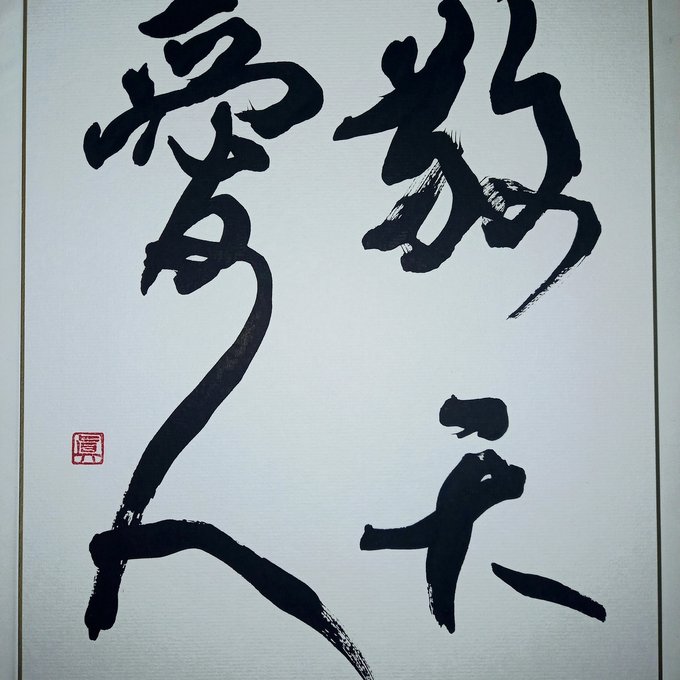 敬天
愛人
眞